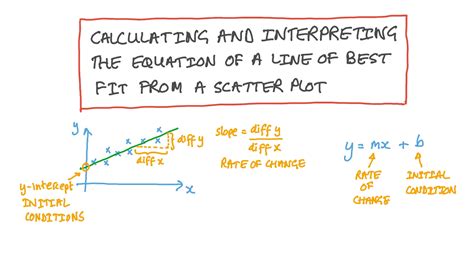 CALCULATING AND INTERPRETING
THE EQUATION OF A LINE OF BEST
FIT FROM A SCATTER PLOT
y
diff y
diff x
x
y-intercept
INITIAL
CONDITIONS
slope = diff y
diff x
RATE OF CHANGE
y = mx + b
RATE
OF
CHANGE
INITIAL
CONDITION